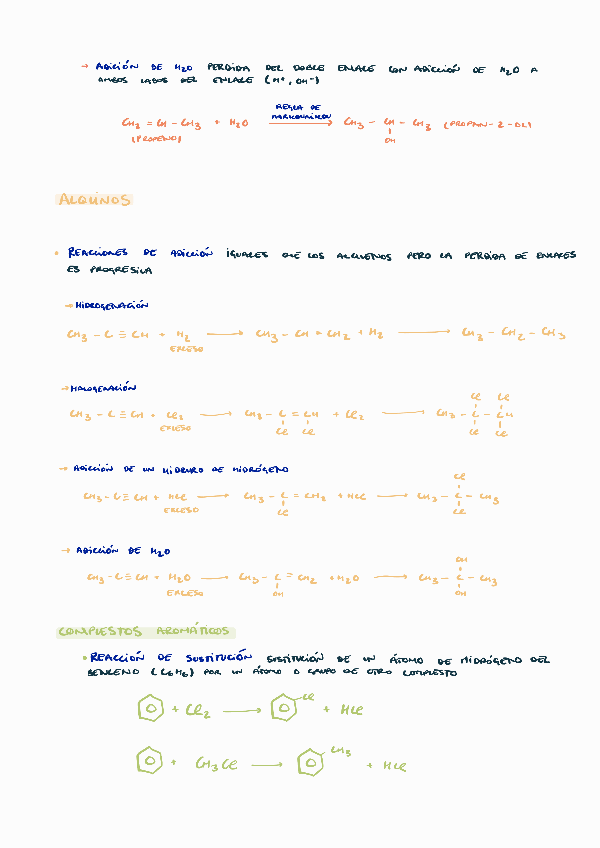 → ADICIÓN DE H2O PERDIDA DEL DOBLE ENLACE CON ADICCIÓN DE H2O A
AMBOS LADOS DEL ENLACE (H+, OH-)
REGLA DE
MARKOVNIKOV
CH2 = CH - CH3 + H2O → CH3 - CH - CH3 (PROPAN-2-OL)
(PROPENO) OH
ALQUINOS
• REACCIONES DE ADICIÓN IGUALES QUE LOS ALQUENOS PERO LA PERDIDA DE ENLACES
ES PROGRESIVA
→ HIDROGENACIÓN
CH3 - C ≡ CH + H2 → CH3 - CH = CH2 + H2 → CH3 - CH2 - CH3
EXCESO
→ HALOGENACIÓN
Cl Cl
CH3 - C ≡ CH + Cl2 → CH3 - C = CH + Cl2 → CH3 - C - CH
EXCESO Cl Cl Cl Cl
→ ADICIÓN DE UN HIDRURO DE HIDRÓGENO
Cl
CH3 - C ≡ CH + HCl → CH3 - C = CH2 + HCl → CH3 - C - CH3
EXCESO Cl Cl
→ ADICCIÓN DE H2O
OH
CH3 - C ≡ CH + H2O → CH3 - C = CH2 + H2O → CH3 - C - CH3
EXCESO OH OH
COMPUESTOS AROMÁTICOS
• REACCIÓN DE SUSTITUCIÓN SUSTITUCIÓN DE UN ÁTOMO DE HIDRÓGENO DEL
BENCENO (C6H6) POR UN ÁTOMO O GRUPO DE OTRO COMPUESTO
+ Cl2 → Cl + HCl
+ CH3Cl → CH3 + HCl